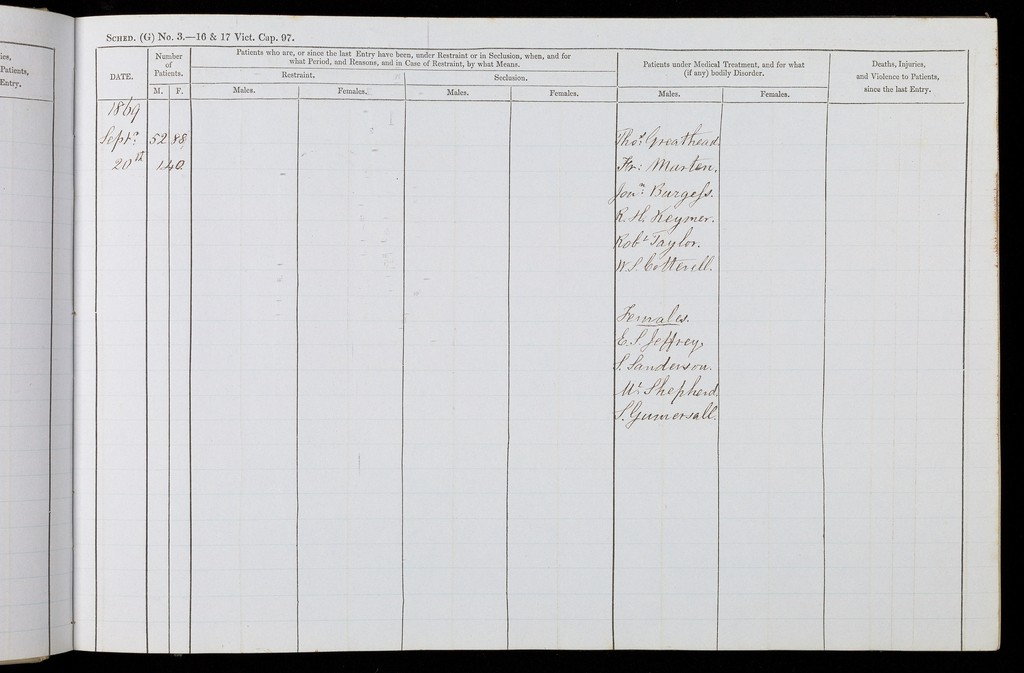 ies,
Patients,
Entry.
SCHED. (G) No. 3.—16 & 17 Vict. Cap. 97.
DATE.
Number
of
Patients.
M. F.
Patients who are, or since the last Entry have been, under Restraint or in Seclusion, when, and for
what Period, and Reasons, and in Case of Restraint, by what Means.
Restraint.
Seclusion.
Males. Females. Males. Females.
Patients under Medical Treatment, and for what
(if any) bodily Disorder.
Males. Females.
Deaths, Injuries,
and Violence to Patients,
since the last Entry.
1869
Septr. 52 88 Thos. Greathead
20th 140. Fr: Marton.
Jonn: Burgess.
R. H. Keymer.
Robt Taylor.
W. S. Cotterell.
Females.
E. S. Jeffrey,
S. Sanderson.
Shepherd
S. Gumersall.